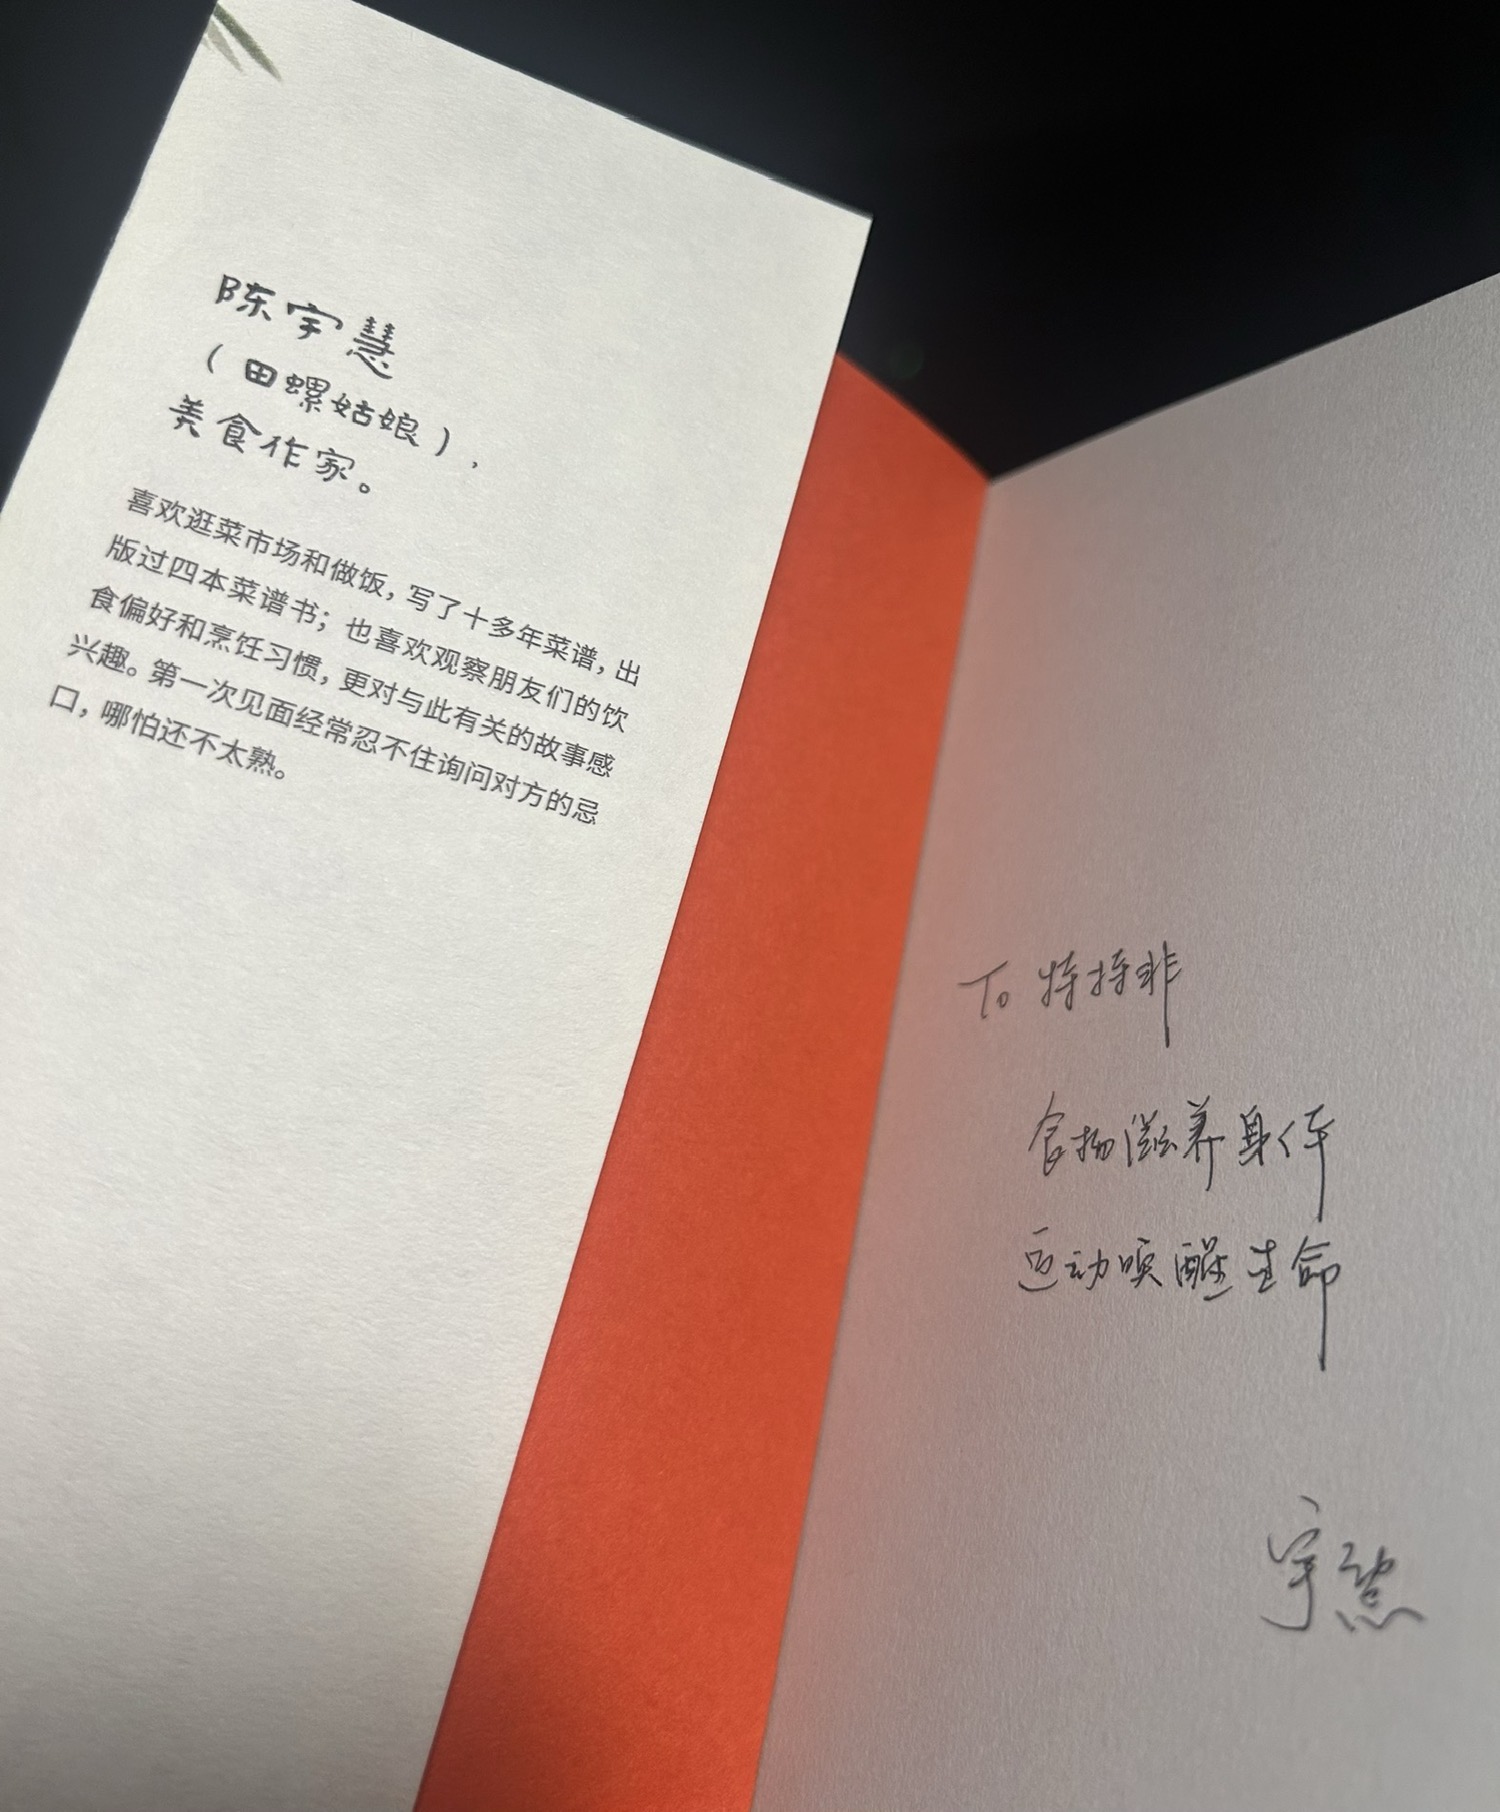 陈宇慧
（田螺姑娘），
美食作家。
喜欢逛菜市场和做饭，写了十多年菜谱，出
版过四本菜谱书；也喜欢观察朋友们的饮
食偏好和烹饪习惯，更对与此有关的故事感
兴趣。第一次见面经常忍不住询问对方的忌
口，哪怕还不太熟。
To 特特非
食物滋养身体
运动唤醒生命
宇慧